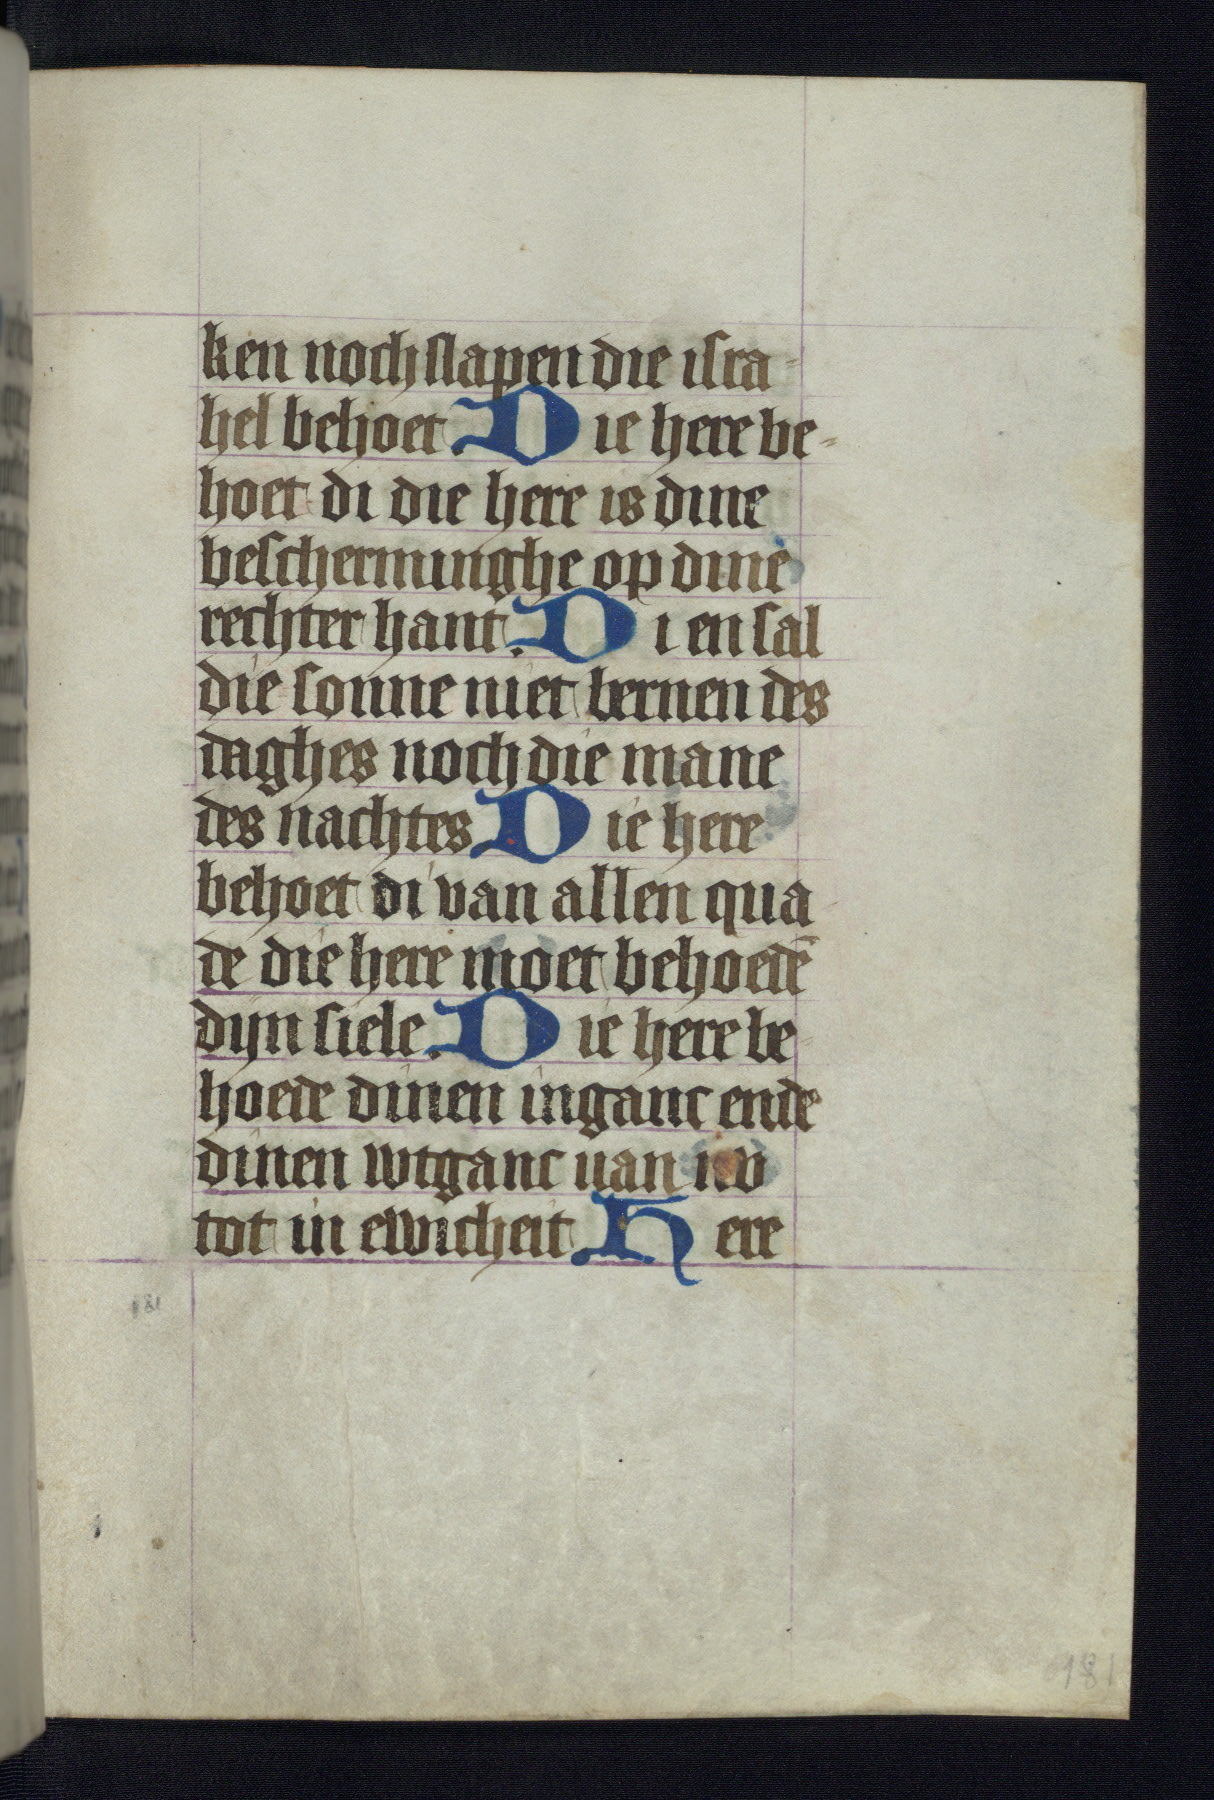 ken noch slapen die isra-
hel behoet. Die here be-
hoet di die here is dine
bescherminghe op dine
rechter hant. Di en sal
die sonne niet bernen des
daghes noch die mane
des nachtes. Die here
behoet di van allen qua-
de die here moet behoedē
dijn siele. Die here be-
hoede dinen inganc ende
dinen wtganc uan nv
tot in ewicheit. Here
181
181